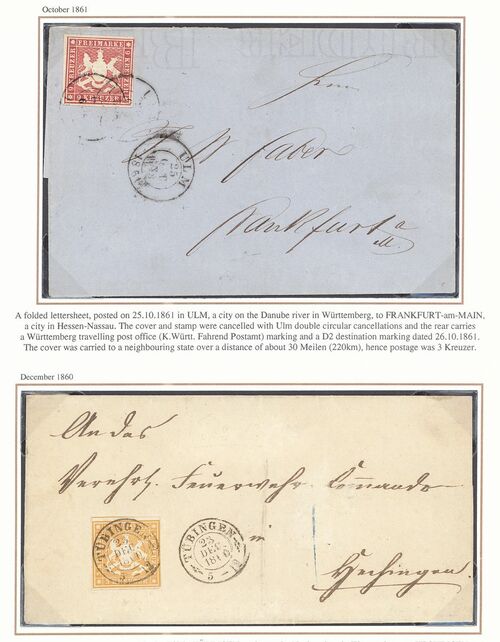 October 1861
FREIMARKE
9 KREUZER
9 KREUZER
9 KREUZER
Herrn
J. W. Faber
Frankfurt a/M.
ULM
25
OCT
A folded lettersheet, posted on 25.10.1861 in ULM, a city on the Danube river in Württemberg, to FRANKFURT-am-MAIN,
a city in Hessen-Nassau. The cover and stamp were cancelled with Ulm double circular cancellations and the rear carries
a Württemberg travelling post office (K.Württ. Fahrend Postamt) marking and a D2 destination marking dated 26.10.1861.
The cover was carried to a neighbouring state over a distance of about 30 Meilen (220km), hence postage was 3 Kreuzer.
December 1860
An das
Verehrl. Feuerwehr Commando
in
Hechingen
TÜBINGEN
23
DEZ
TÜBINGEN
23
DEZ
1860